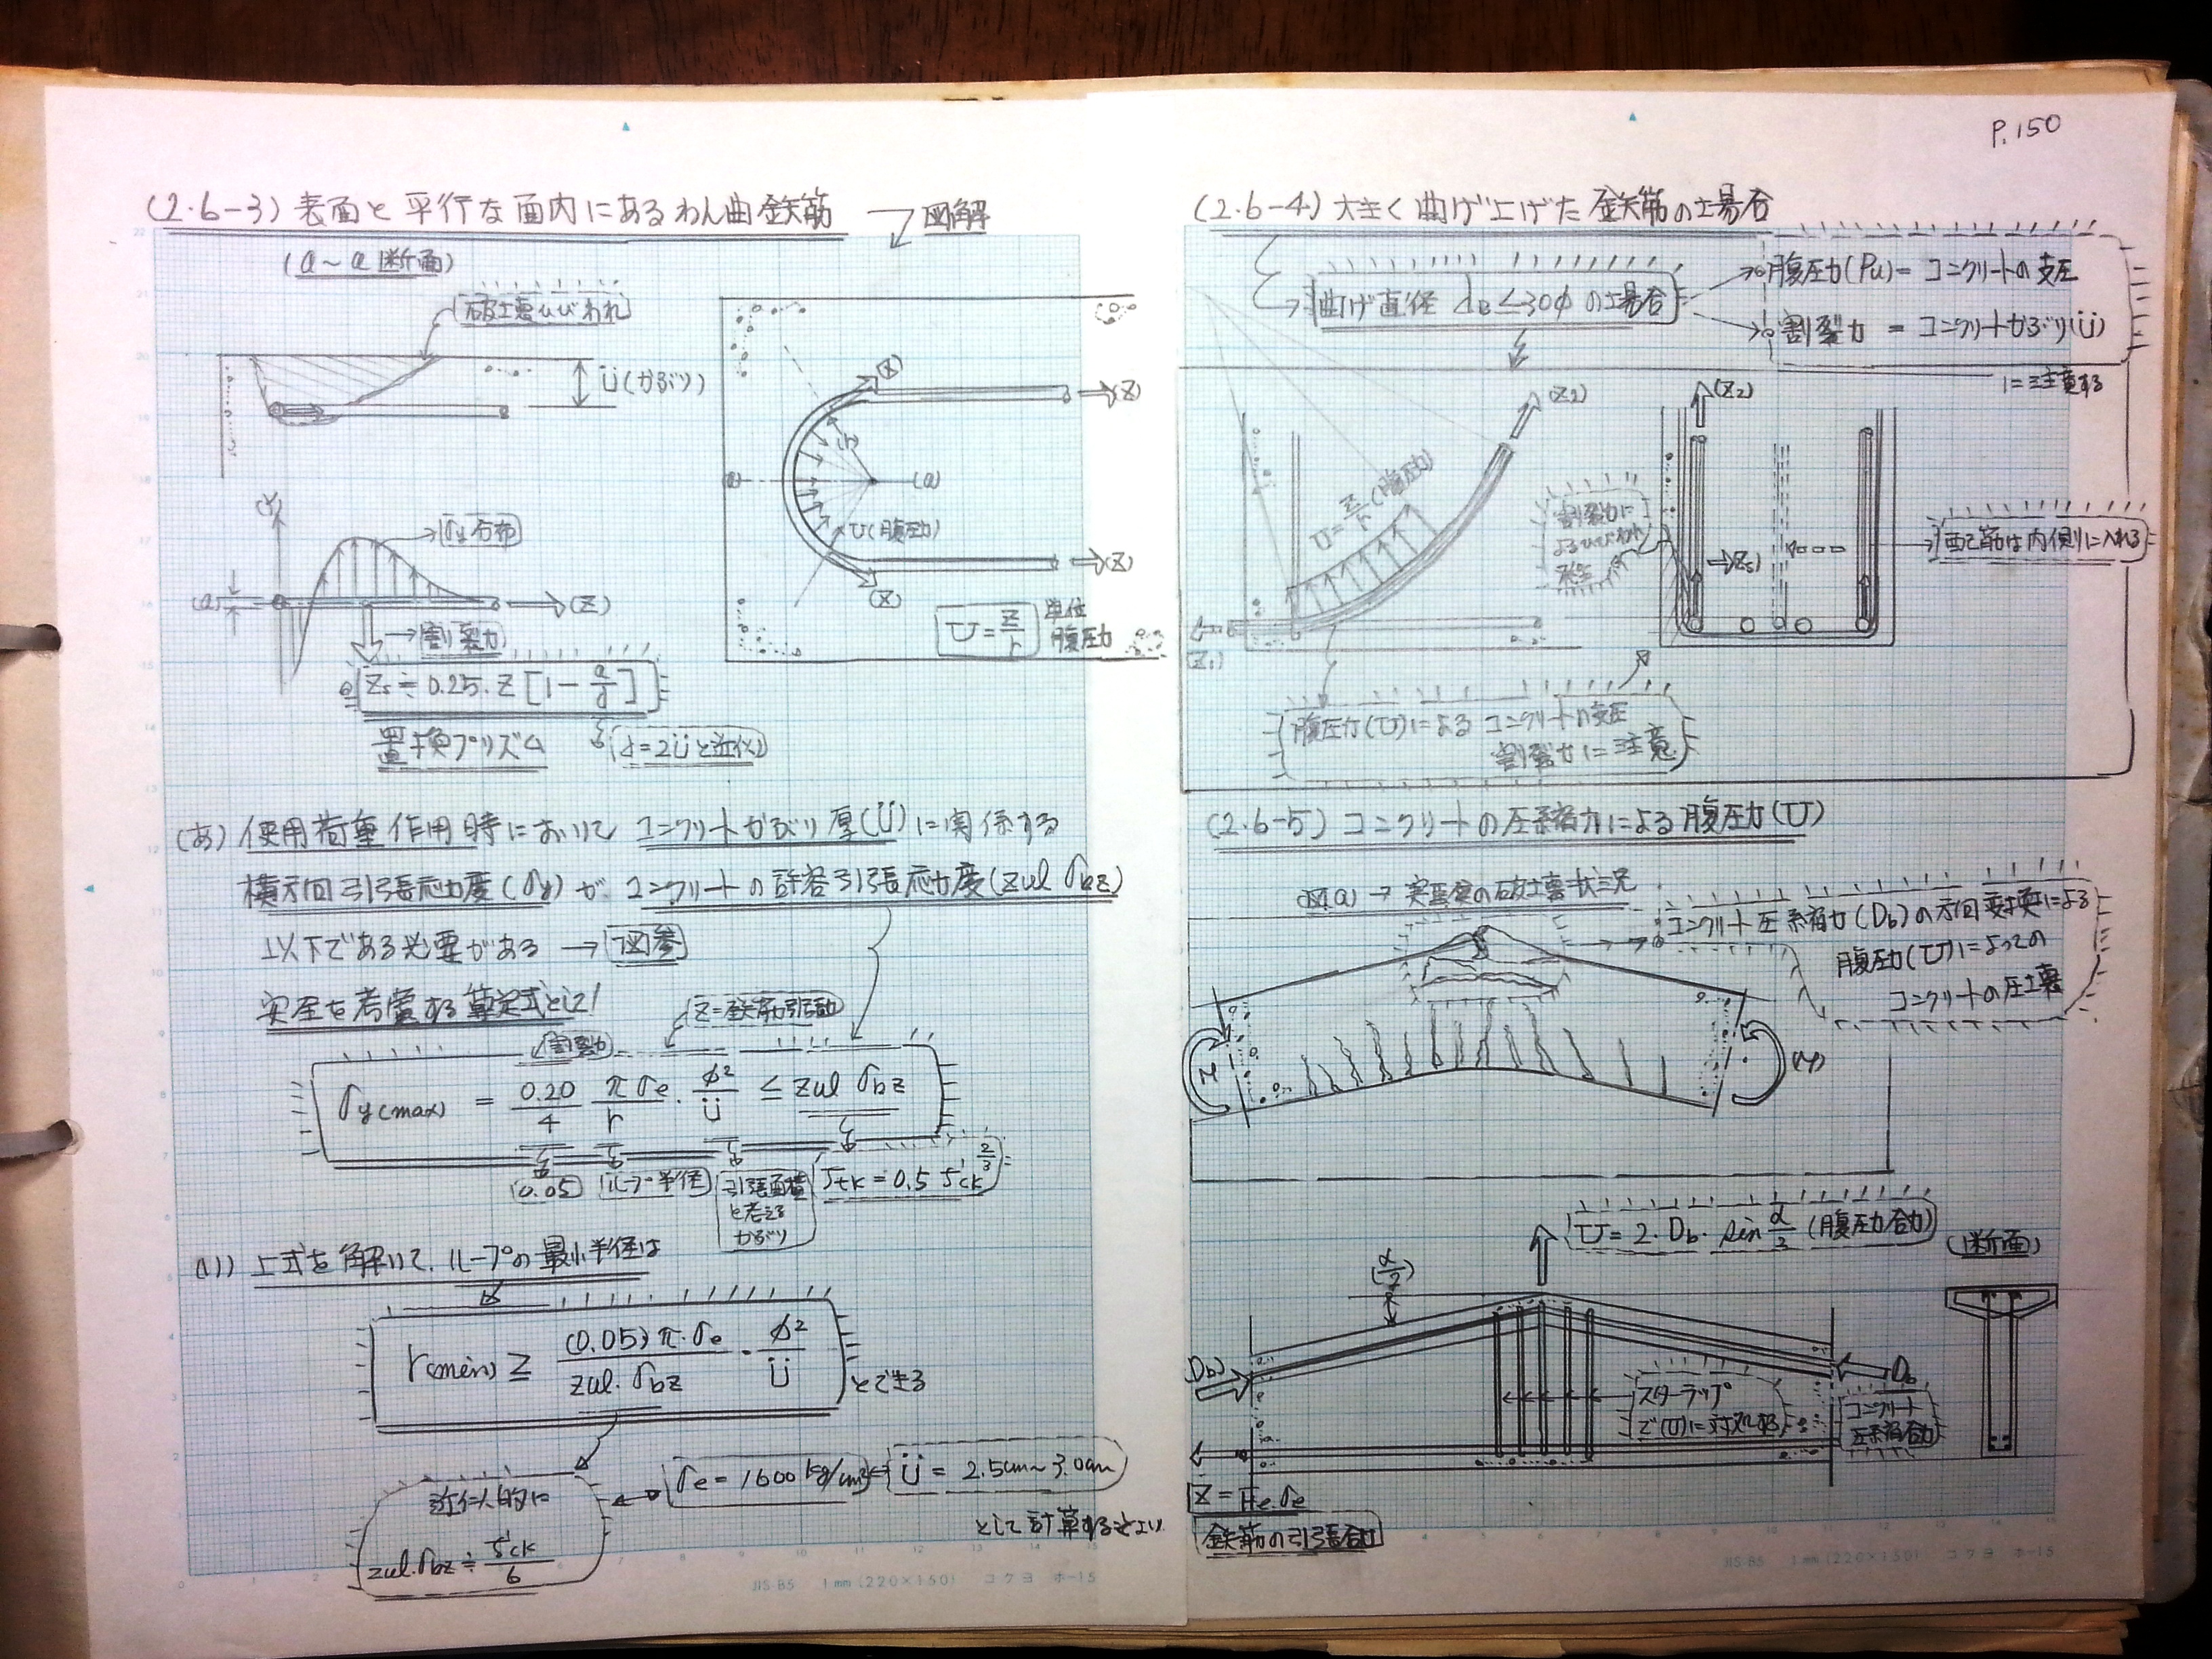 P.150
(2.6-3) 表面と平行な面内にあるわん曲鉄筋
図解
(a~a断面)
破壊ひびわれ
ü(かぶり)
(y)
σy分布
(a)
(Z)
割裂力
Zs≒0.25.Z[1-a/d]
置換プリズム
d=2üと近似
(Z)
(Z)
(r)
(a)
(a)
U(腹圧力)
(Z)
(Z)
U=Z/r
単位
腹圧力
(あ) 使用荷重作用時においてコンクリートかぶり厚(ü)に関係する
横方向引張応力度(σy)が、コンクリートの許容引張応力度(zul σbz)
以下である必要がある → 図参
安全を考慮する算定式として
割裂力
Z=鉄筋引張力
σy(max) = 0.20/4 πσe/r · φ²/ü ≤ zul σbz
(0.05)
ループ半径
引張面積
と考える
かぶり
σtk=0.5 σck^2/3
(い) 上式を解いて、ループの最小半径は
r(min) ≥ (0.05)π·σe/zul·σbz · φ²/ü
とできる
近似的に
zul.σbz≒σck/6
σe=1600kg/cm²
ü=2.5cm~3.0cm
として計算するとよい
(2.6-4) 大きく曲げ上げた鉄筋の場合
曲げ直径 dB≤30φの場合
腹圧力(Pu)=コンクリートの支圧
割裂力 = コンクリートかぶり(ü)
に注意する
(Z2)
U=Z/r(腹圧力)
(Z1)
割裂力に
よるひびわれ
発生
(Z2)
(Zs)
配筋は内側に入れる
腹圧力(U)によるコンクリートの支圧
割裂力に注意
(2.6-5) コンクリートの圧縮力による腹圧力(U)
図(a)→実験後の破壊状況
コンクリート圧縮力(Db)の方向変換による
腹圧力(U)によっての
コンクリートの圧壊
M
(M)
U=2.Db.sin α/2 (腹圧力合力)
(断面)
(α/2)
Db
Db
スターラップ
で(U)に対処する
コンクリート
圧縮合力
Z=Fe.σe
鉄筋の引張合力
JIS B5 1mm(220×150) コクヨ ホ-15
JIS B5 1mm(220×150) コクヨ ホ-15